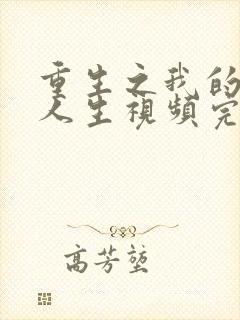 重生之我的
人生視頻完
高芳堃